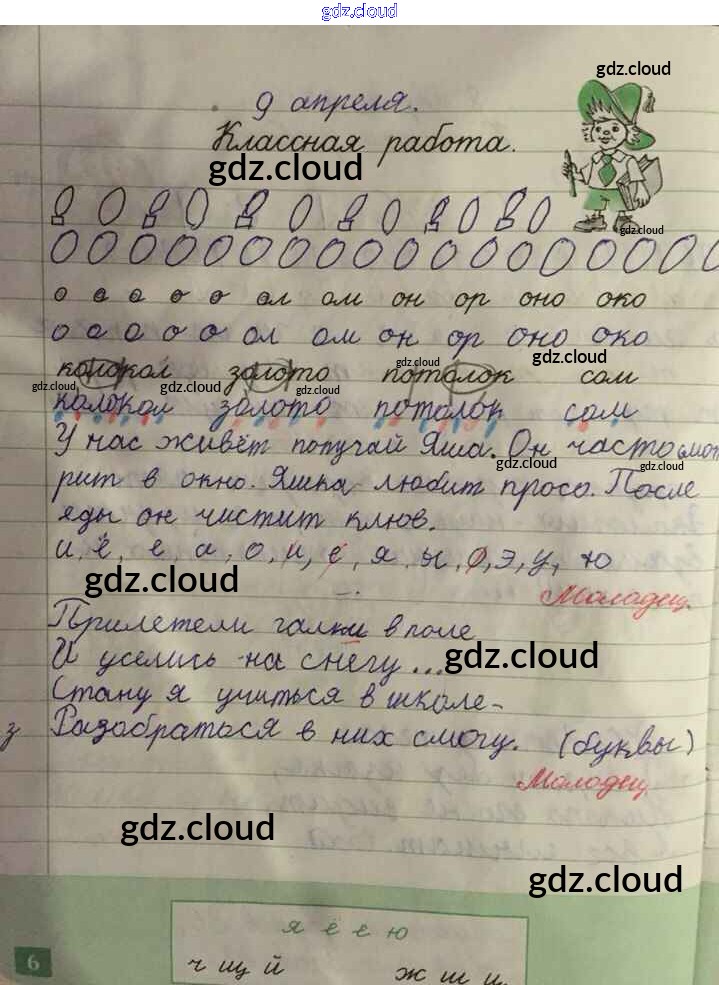 gdz.cloud
gdz.cloud
9 апреля.
Классная работа.
gdz.cloud
gdz.cloud
о о о о о ол ом он ор оно око
о о о о о ол ом он ор оно око
gdz.cloud
колокол золото потолок сом
gdz.cloud
gdz.cloud gdz.cloud gdz.cloud
колокол золото потолок сом
У нас живёт попугай Яша. Он часто смот
gdz.cloud gdz.cloud
рит в окно. Яшка любит просо. После
еды он чистит клюв.
и, ё, е, а, о, и, е, я, ы, о, э, у, ю
gdz.cloud
Молодец.
Прилетели галки в поле
И уселись на снегу...
gdz.cloud
Стану я учиться в школе-
з Разобраться в них смогу. (буквы)
Молодец
gdz.cloud
gdz.cloud
я ё е ю
6 ч щ й ж ш ц